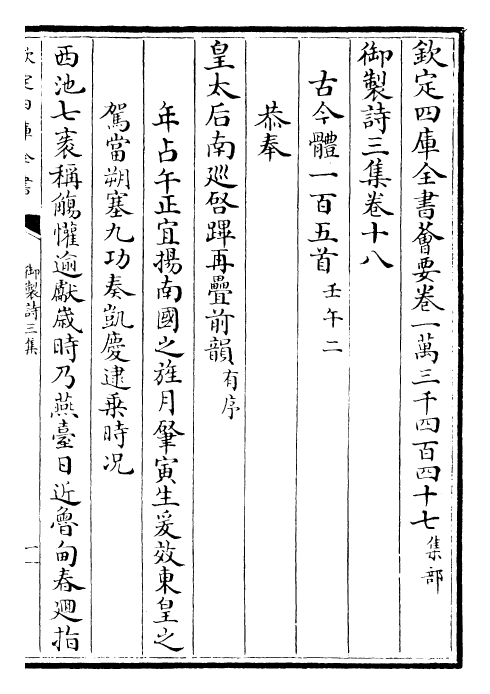 欽定四庫全書薈要卷一萬三千四百四十七集部
御製詩三集卷十八
古今體一百五首壬午二
恭奉
皇太后南廵啓蹕再疊前韻有序
年占午正宜揚南國之旌月肇寅生爰效東皇之
駕當朔塞九功奏凱慶逮乗時况
西池七袠稱觴懽逾獻歳時乃燕臺日近魯甸春廻指
欽定四庫全書
御製詩三集
一